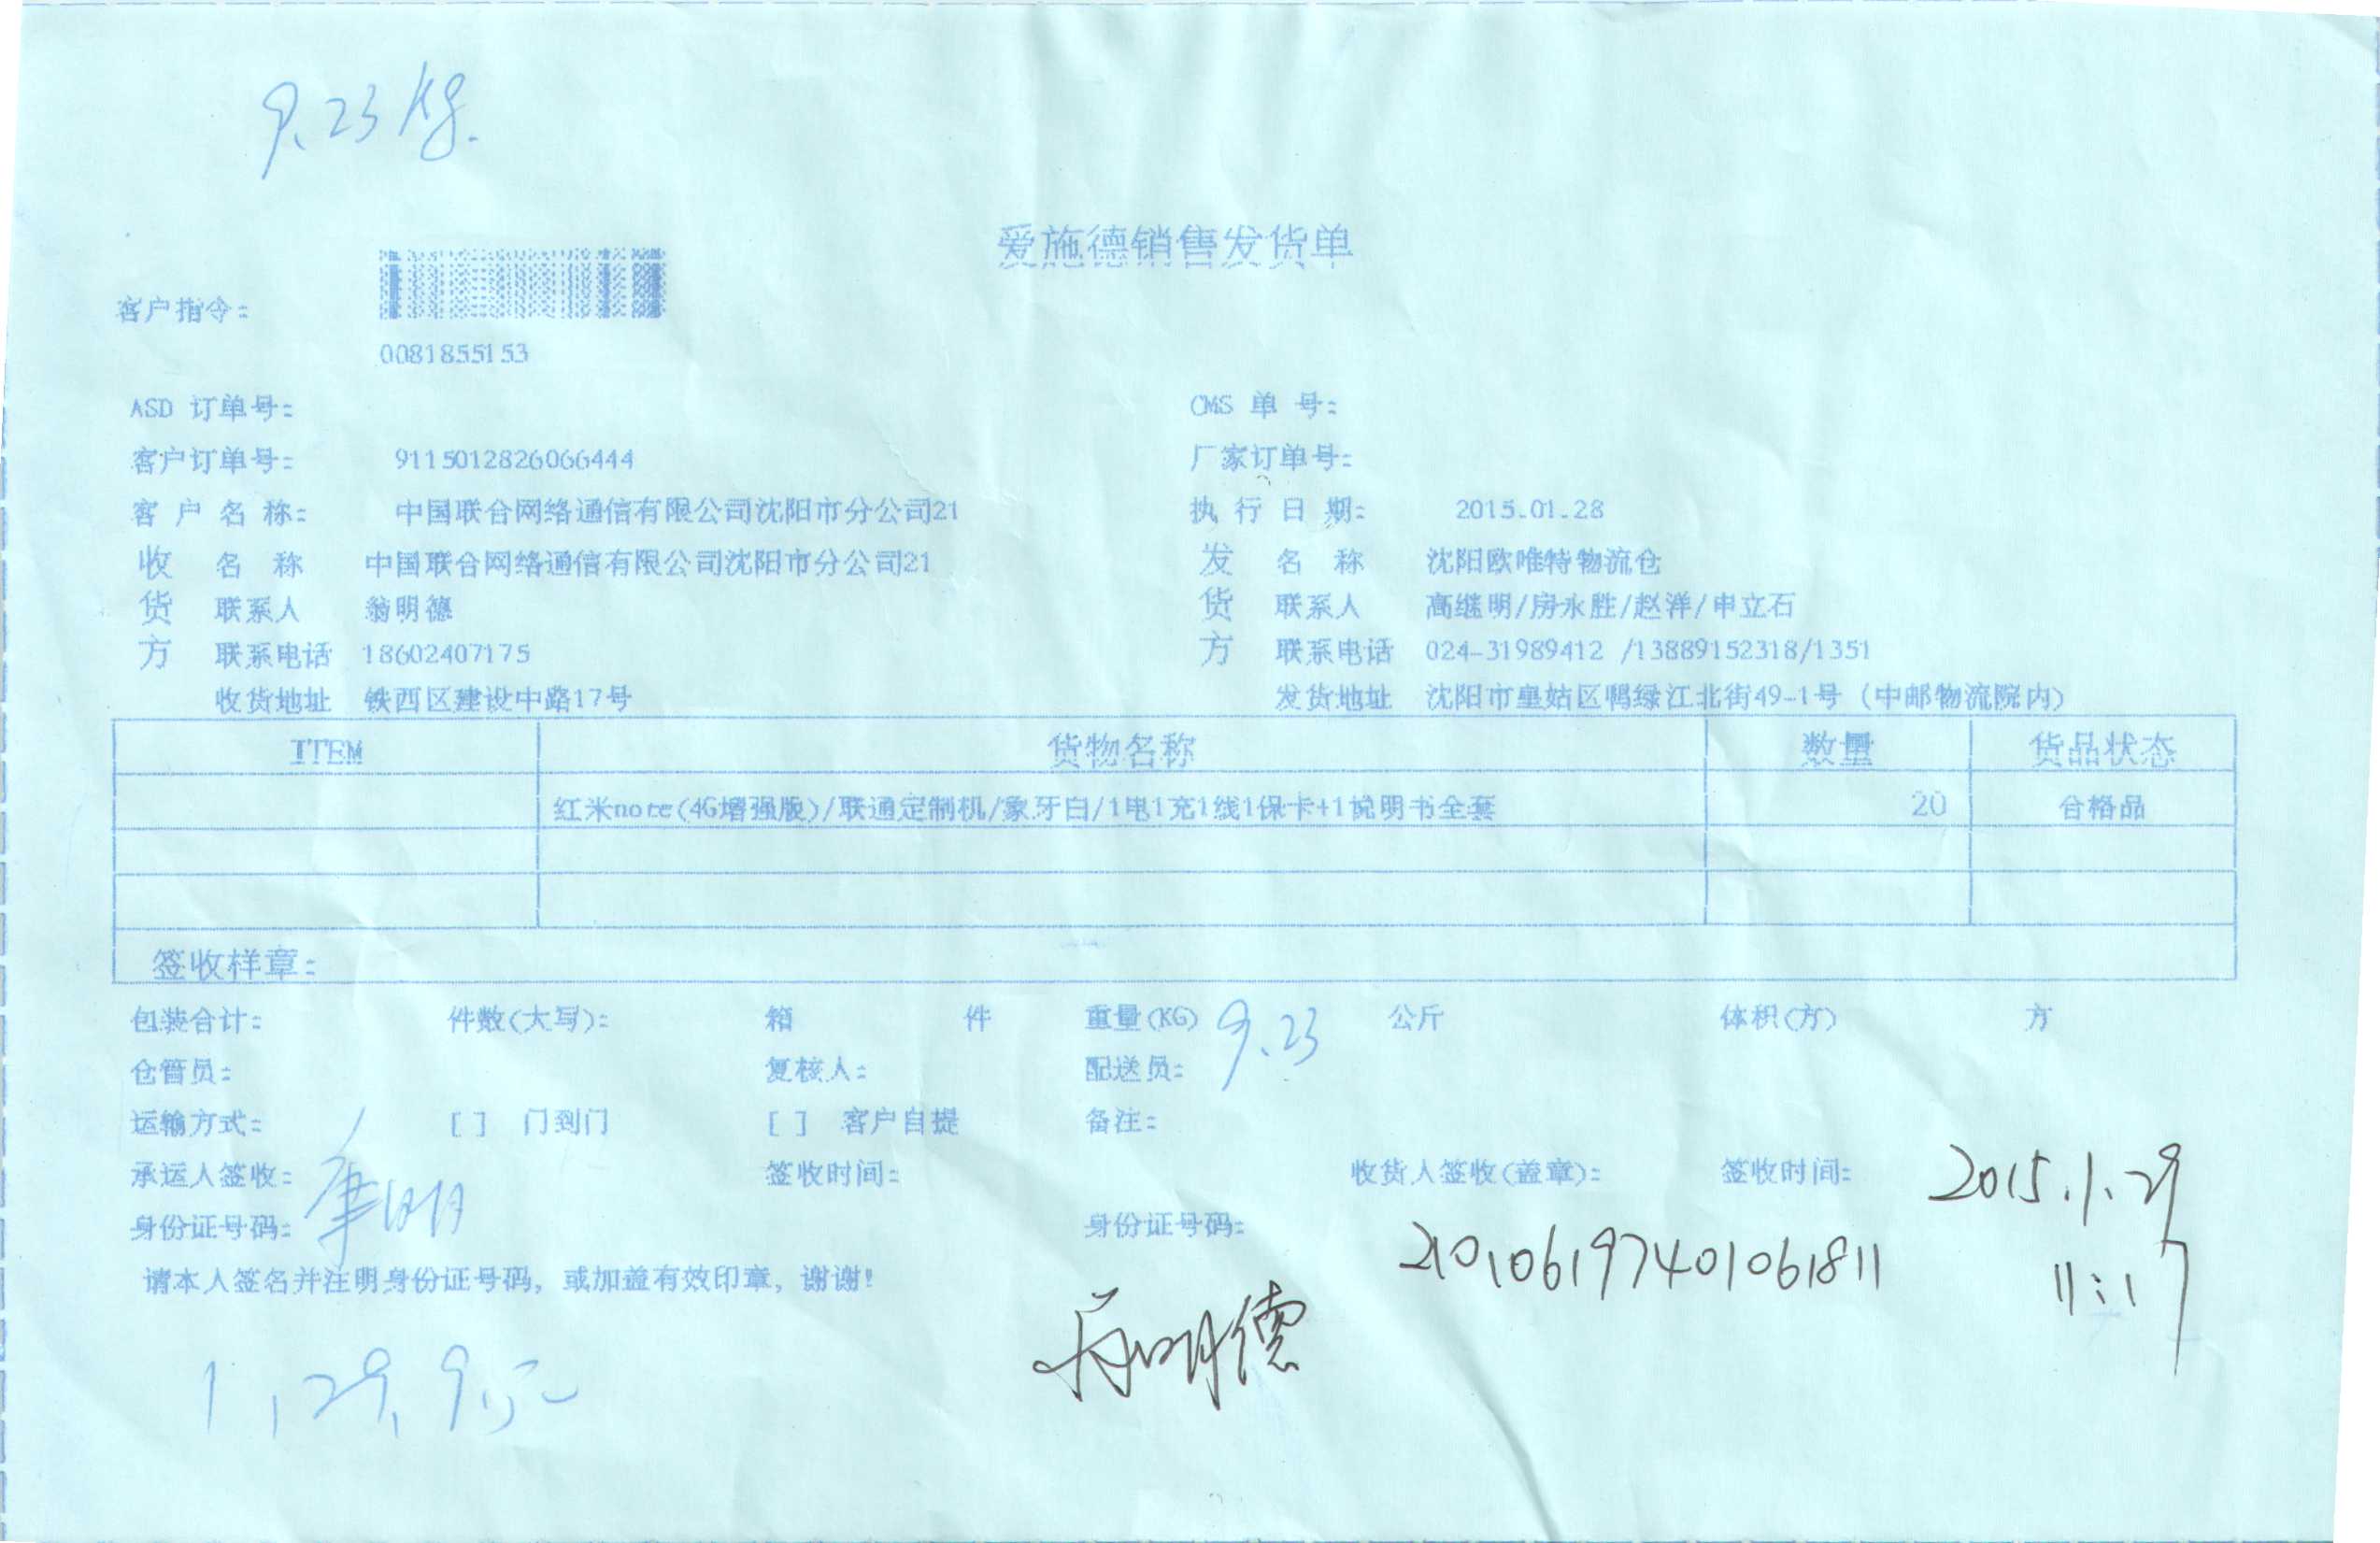 9.23Kg.
爱施德销售发货单
客户指令:
0081855153
ASD 订单号: CMS 单 号:
客户订单号: 9115012826066444 厂家订单号:
客 户 名 称: 中国联合网络通信有限公司沈阳市分公司21 执 行 日 期: 2015.01.28
收 名 称 中国联合网络通信有限公司沈阳市分公司21 发 名 称 沈阳欧唯特物流仓
货 联系人 翁明德 货 联系人 高继明/房永胜/赵洋/申立石
方 联系电话 18602407175 方 联系电话 024-31989412 /13889152318/1351
收货地址 铁西区建设中路17号 发货地址 沈阳市皇姑区鸭绿江北街49-1号 (中邮物流院内)
ITEM 货物名称 数量 货品状态
红米note(4G增强版)/联通定制机/象牙白/1电1充1线1保卡+1说明书全套 20 合格品
签收样章:
包装合计: 件数(大写): 箱 件 重量(KG) 9.23 公斤 体积(方) 方
仓管员: 复核人: 配送员:
运输方式: [ ] 门到门 [ ] 客户自提 备注:
承运人签收: 签收时间: 收货人签收(盖章): 签收时间: 2015.1.29
身份证号码: 身份证号码: 210106197401061811 11:17
请本人签名并注明身份证号码, 或加盖有效印章, 谢谢!
明德